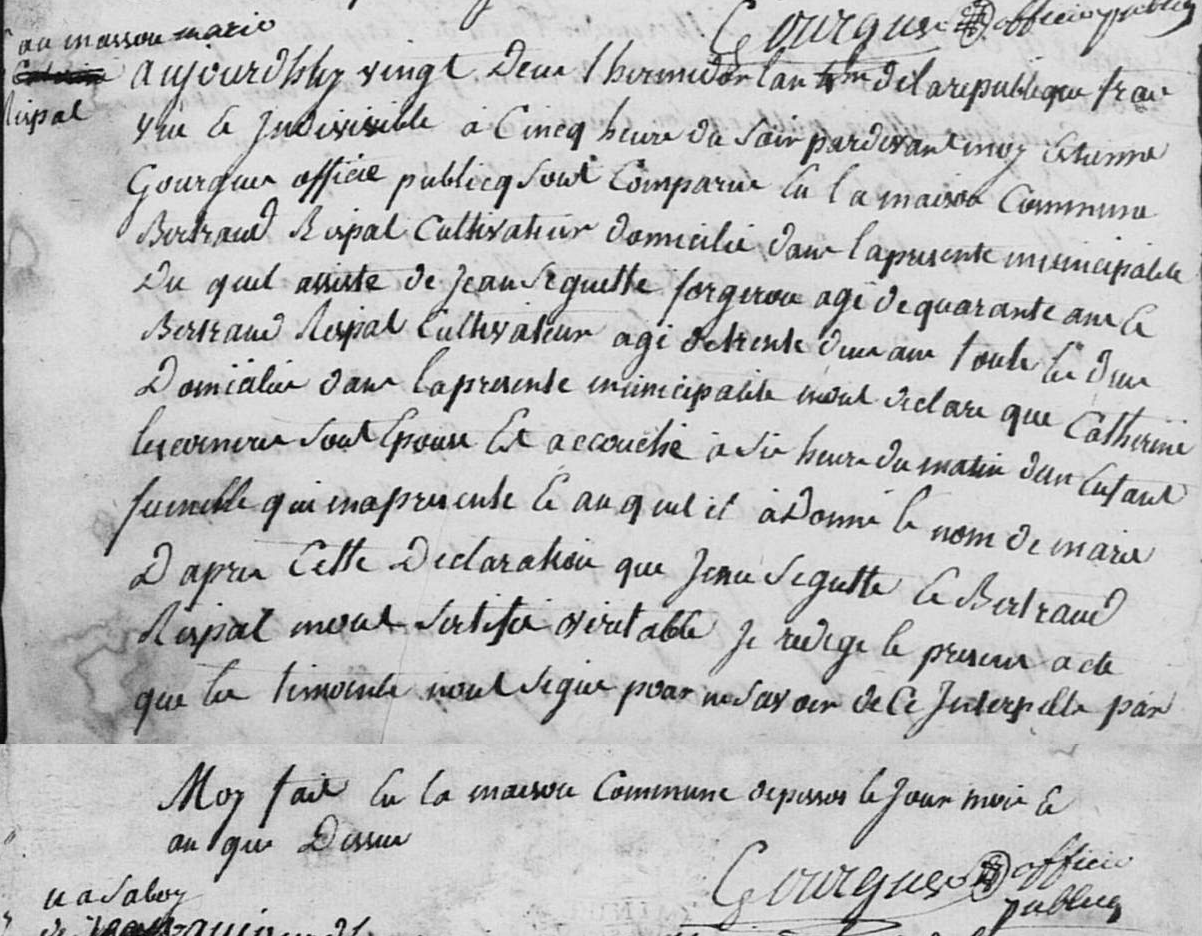 Gourgues officie publicq
au massou marie
Rispal
aujourdhhy vingt Deux thermidor lan 4m delarepublique fran
une Et Indivisible à Cincq heure du Soir pardevant moy Etienne
Gourgues officie publicq Sont Comparue En la maison Commune
Bertrand Rispal Cultivateur domicilie dans lapresente municipalite
Du quel assiste de Jean Seguette forgeron age de quarante ans Et
Bertrand Rispal Cultivateur age detrente deux ans toute les deux
Domicilie dans lapresente municipalite mont declare que Catherine
Sont Epouse Est accouchie à Six heure du matin dun Enfant
fumelle qui mapresente Et au quel il à Donné le nom de marie
Dapres Cette Declaration que Jean Seguette Et Bertrand
Rispal mont Sertifie veritable Je redige le present acte
que les timointe nont Signe pour ne Savoir de Ce Interpelle par
Moy fait En la maison Commune depissos le Jour mois Et
an que Dessus
Gourgues officie
publicq